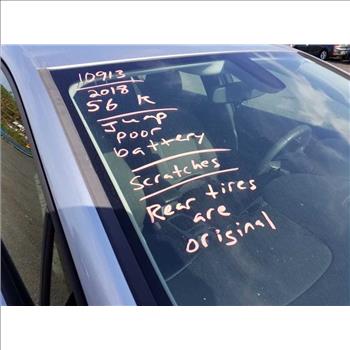 10913
2018
56 K
Jump
poor
battery
Scratches
Rear tires
are
original